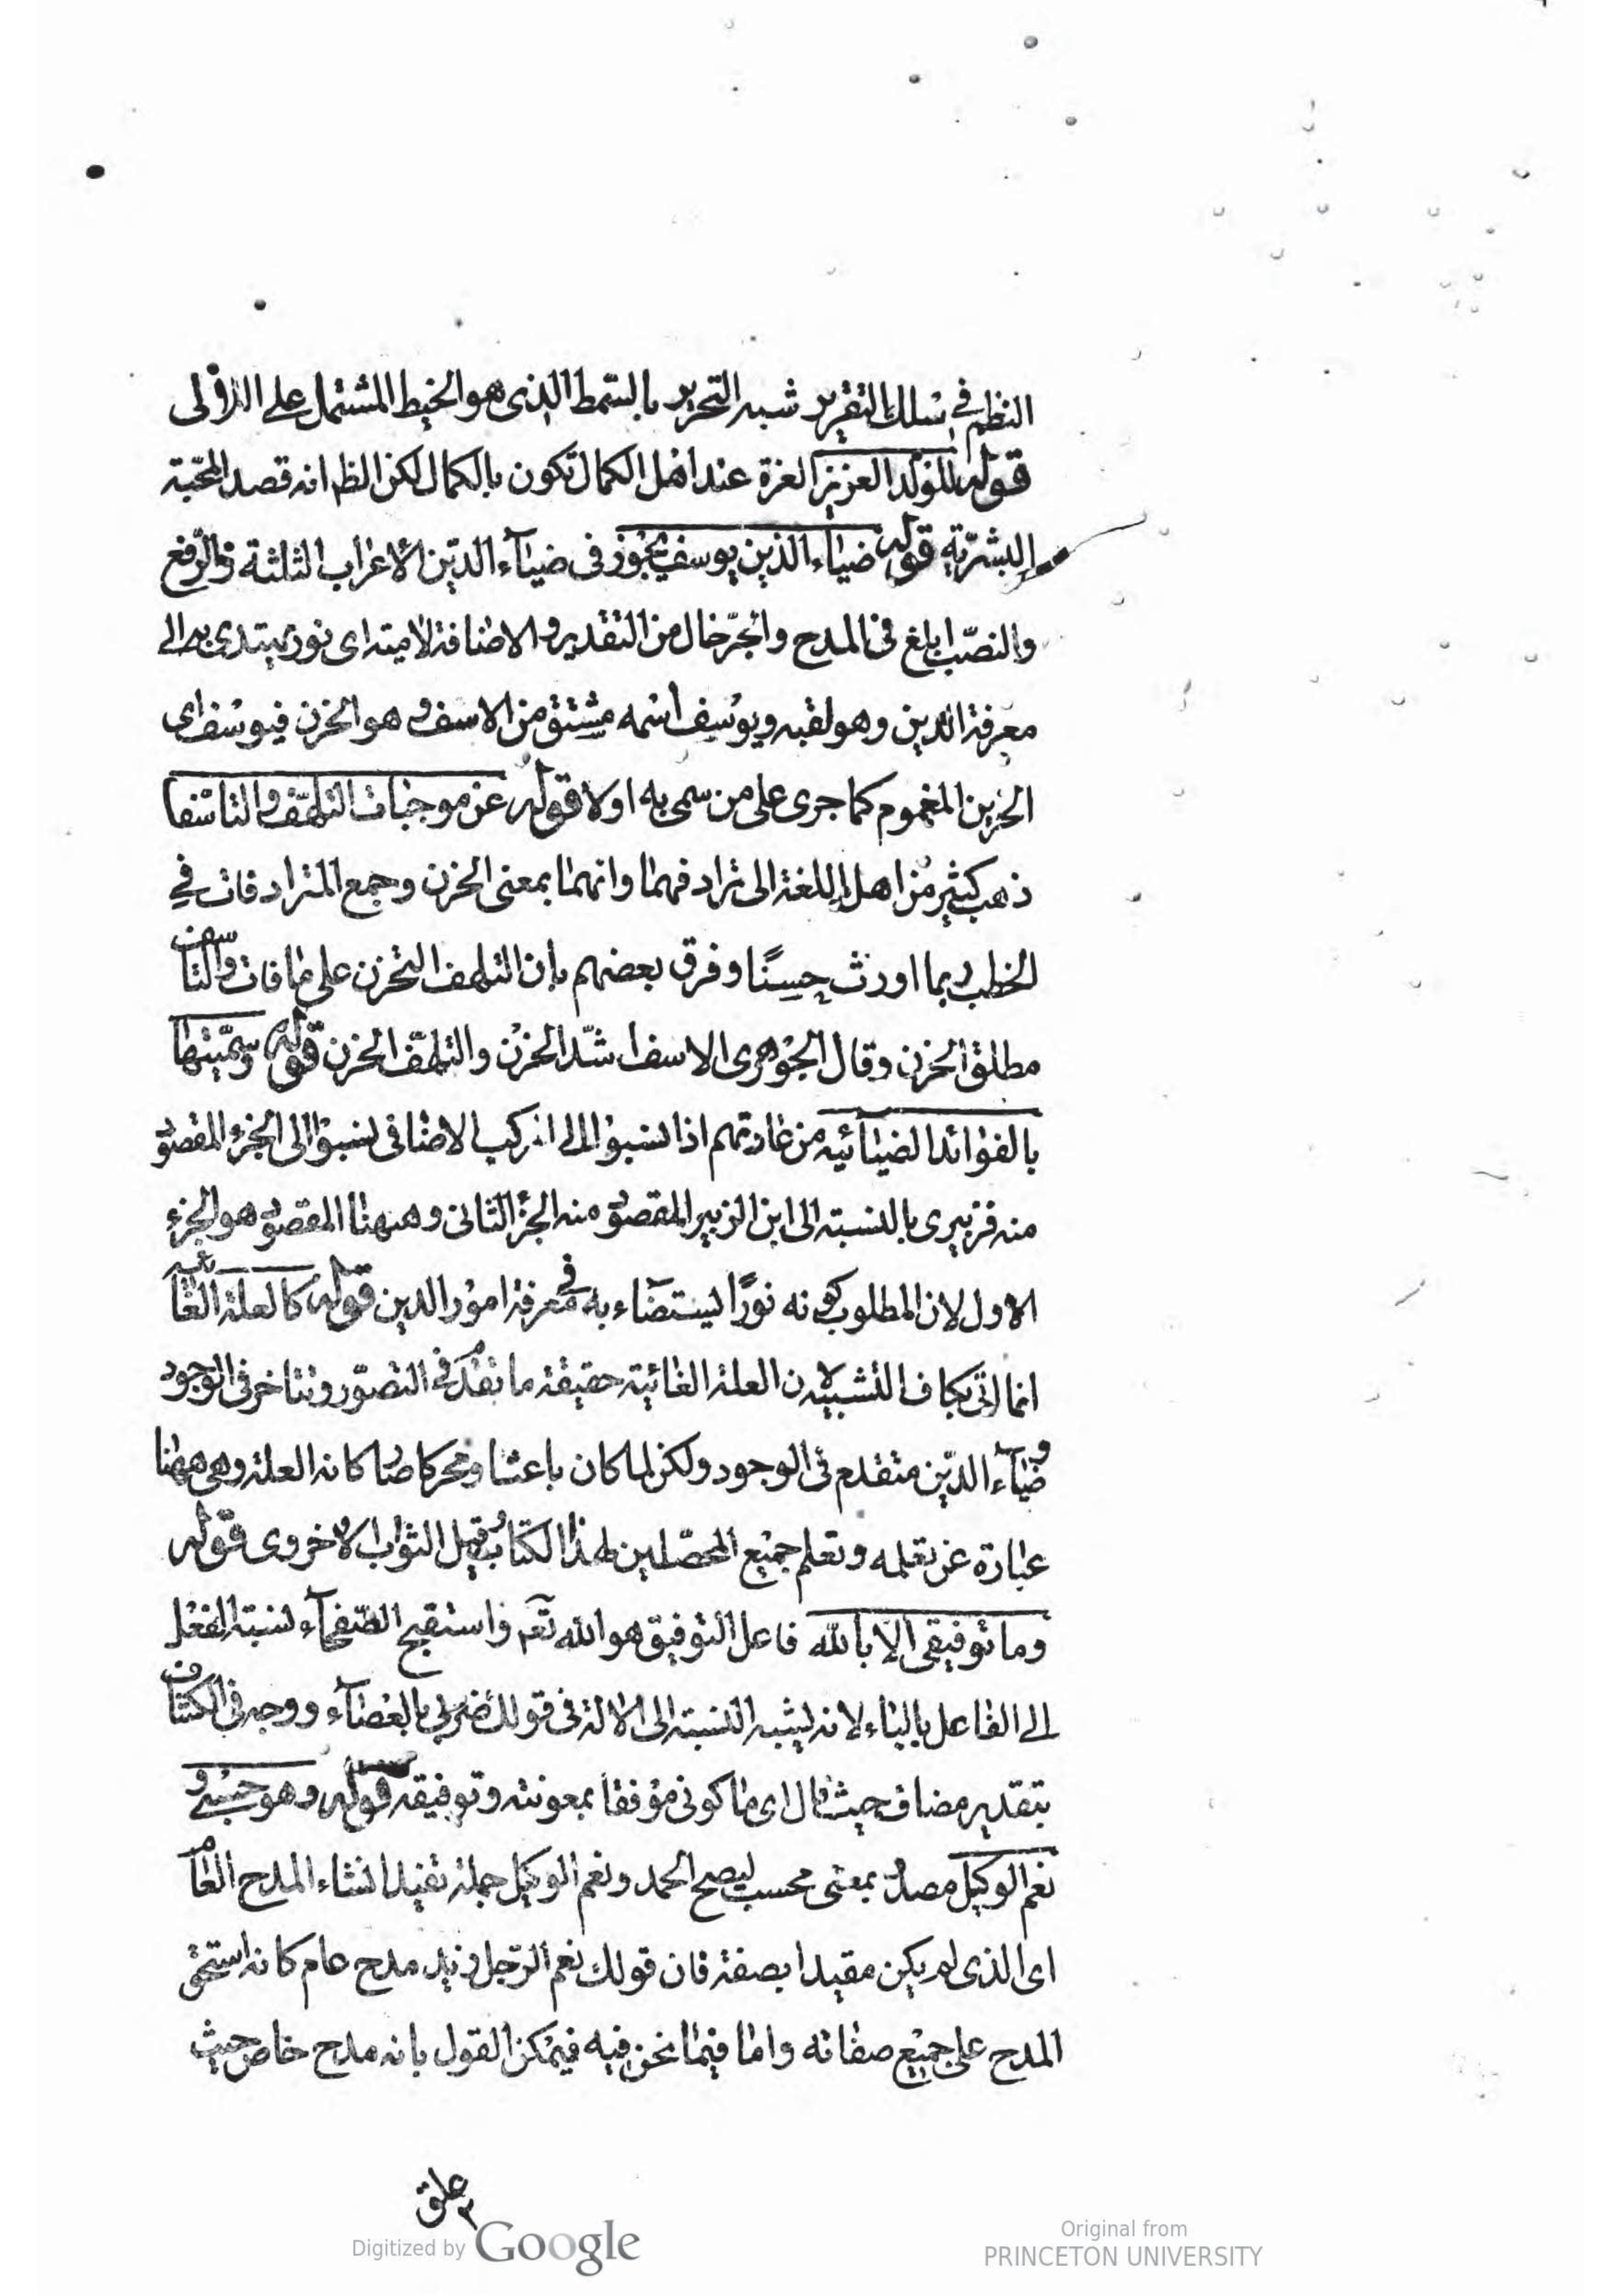 النظم في سلك التقرير شبه التحرير بالسمط الذى هو الخيط المشتمل على اللآلى
قوله للولد العزيز العزة عند اهل الكمال تكون بالكمال لكن الظم انه قصد المحبة
البشرية قوله ضياء الدين يوسف يجوز فى ضياء الدين الاعراب الثلثة والرفع
والنصب ابلغ فى المدح والجر خال من التقدير والاضافة لامية اى نور يهتدى به الى
معرفة الدين وهو لقبه ويوسف اسمه مشتق من الاسف وهو الحزن فيوسف اى
الحزين المغموم كما جرى على من سمى به اولا قوله عن موجبات التلهف والتاسف
ذهب كثير من اهل اللغة الى ترادفهما وانهما بمعنى الحزن وجمع المترادفات في
الخطب ربما اورث حسنًا وفرق بعضهم بان التلهف التحزن على ما فات والتاسف
مطلق الحزن وقال الجوهرى الاسف اشد الحزن والتلهف الحزن قوله وسميتها
بالفوائد الضيائيه من عادتهم اذا نسبوا الى المركب الاضافى نسبوا الى الجزء المقصود
منه فزبيرى بالنسبة الى ابن الزبير المقصود منه الجزء الثانى وههنا المقصود هو الجزء
الاول لان المطلوب كونه نورًا يستضاء به في معرفة امور الدين قوله كالعلة الغائيه
انما اتى بكاف التشبيه لان العلة الغائية حقيقة ما تقدم في التصور وتتاخر فى الوجود
وضياء الدين متقدم فى الوجود ولكن لما كان باعثا ومحركا صار كانه العلة وهى ههنا
عبارة عن تعلمه وتعلم جميع المحصلين لهذا الكتاب وقيل الثواب الاخروى قوله
وما توفيقى الا بالله فاعل التوفيق هو الله تعم واستقبح الفصحاء نسبة الفعل
الى الفاعل بالباء لانه يشبه النسبة الى الالة فى قولك ضربى بالعصاء ووجه فى الكشاف
بتقدير مضاف حيث قال اى ما كونى موفقا بمعونته وتوفيقه قوله وهو حسبى و
نعم الوكيل مصدر بمعنى محسب ليصح الحمد ونعم الوكيل جملة تفيد انشاء المدح العام
اى الذى لم يكن مقيدا بصفة فان قولك نعم الرجل زيد مدح عام كانه استحق
المدح على جميع صفاته واما فيما نحن فيه فيمكن القول بانه مدح خاص حيث
علق
Digitized by Google
Original from
PRINCETON UNIVERSITY